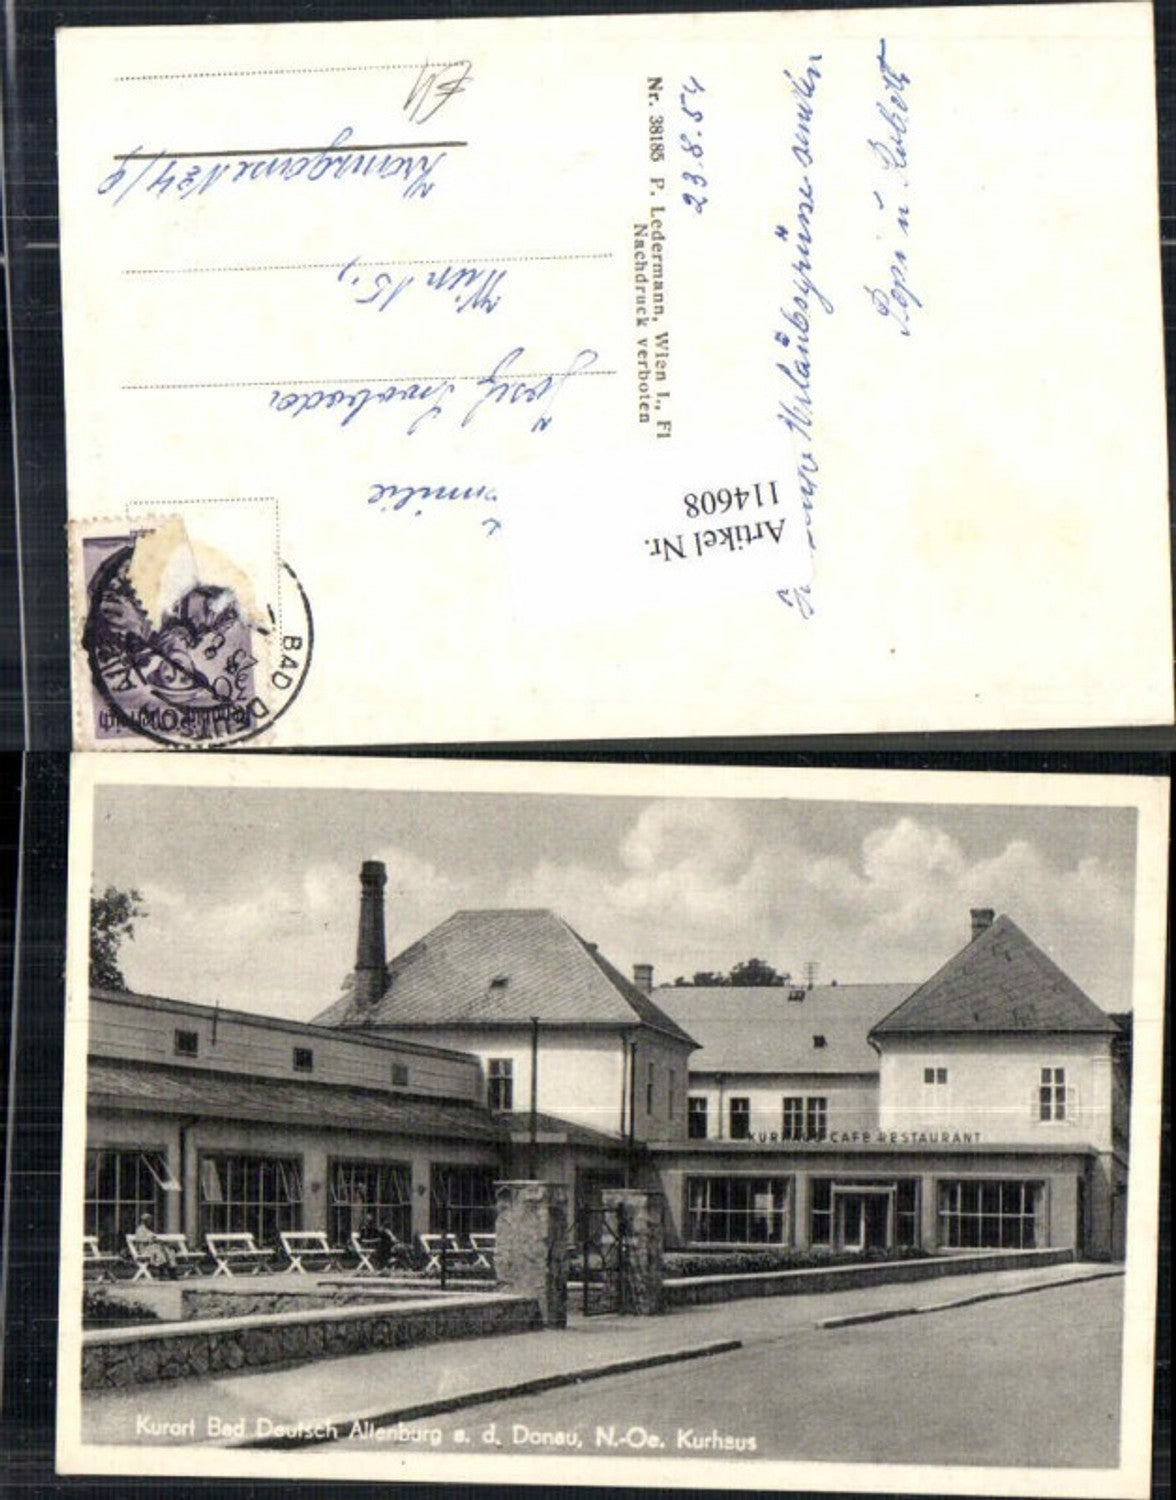 23.8.54
Urlaubsgrüsse senden
Pepi u. Robert
Nr. 38185 P. Ledermann, Wien I., Fl
Nachdruck verboten
Josef Swoboda
Wien 15.,
Kranzgasse No 4/9
Artikel Nr.
114608
BAD DEUTSCH
KURHAUS CAFE RESTAURANT
Kurort Bad Deutsch Altenburg a. d. Donau, N.-Oe. Kurhaus